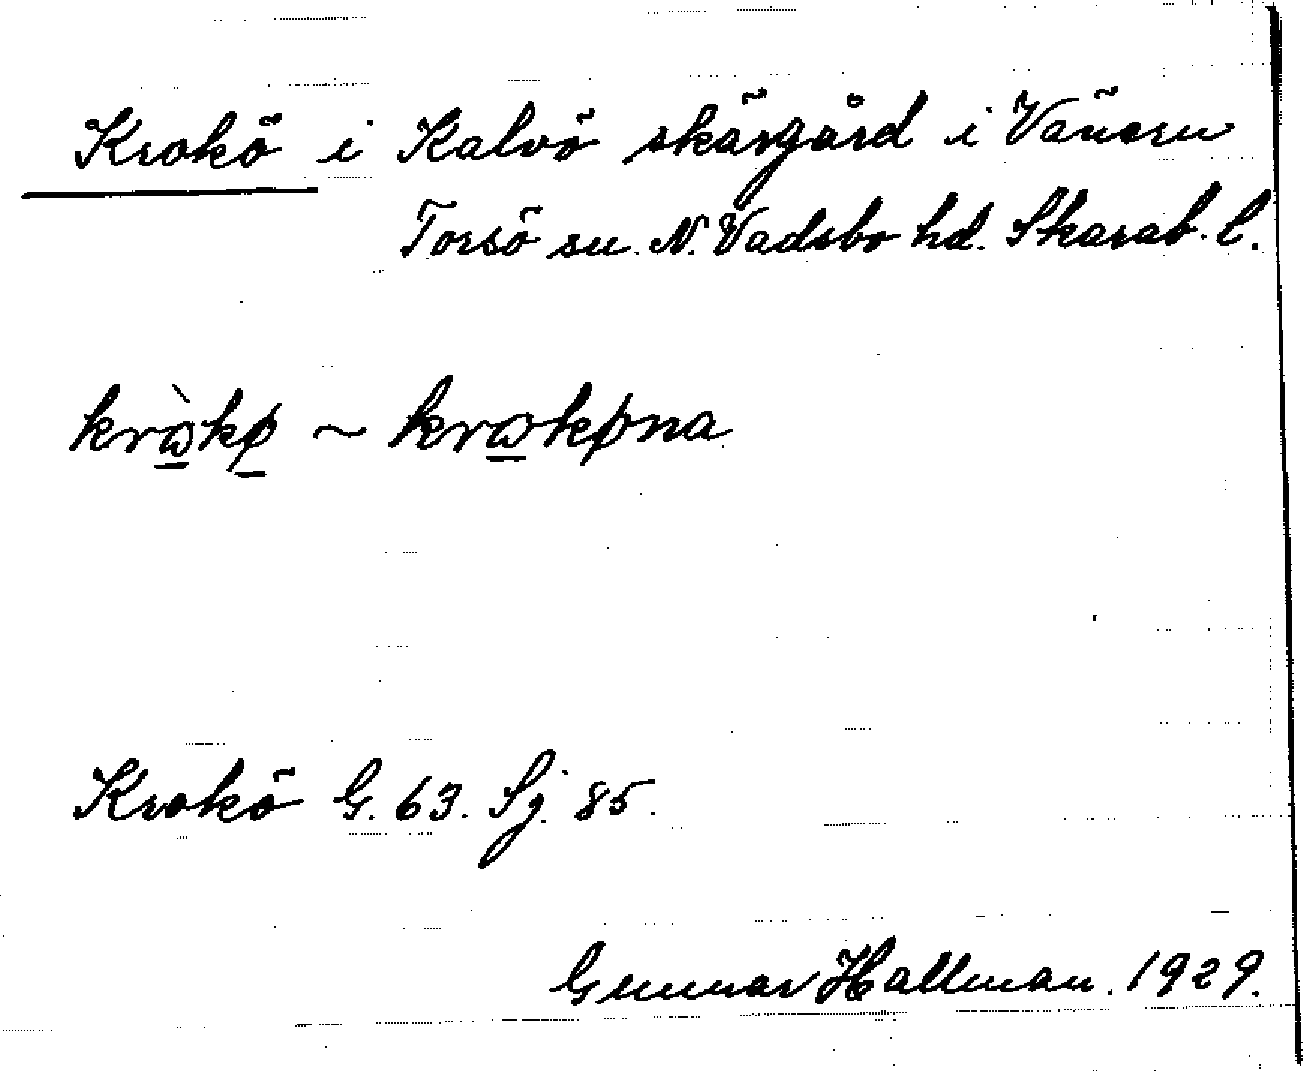 Krokö i Kalvö skärgård i Vänern
Torsö sn. N. Vadsbo hd. Skarab. l.
krὼ̲kø̲ ~ krω̲køna
Krokö G. 63. Sj. 85.
Gunnar Hallman. 1929.